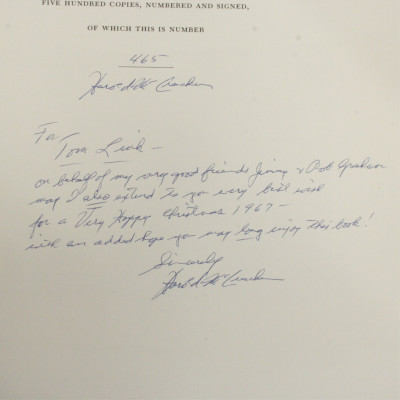 FIVE HUNDRED COPIES, NUMBERED AND SIGNED,
OF WHICH THIS IS NUMBER
465
Harold McCracken
For
Tom Link –
on behalf of my very good friends Jimmy & Bob Graham
may I also extend to you every best wish
for a Very Happy Christmas 1967 –
with an added hope you may long enjoy this book!
Sincerely
Harold McCracken